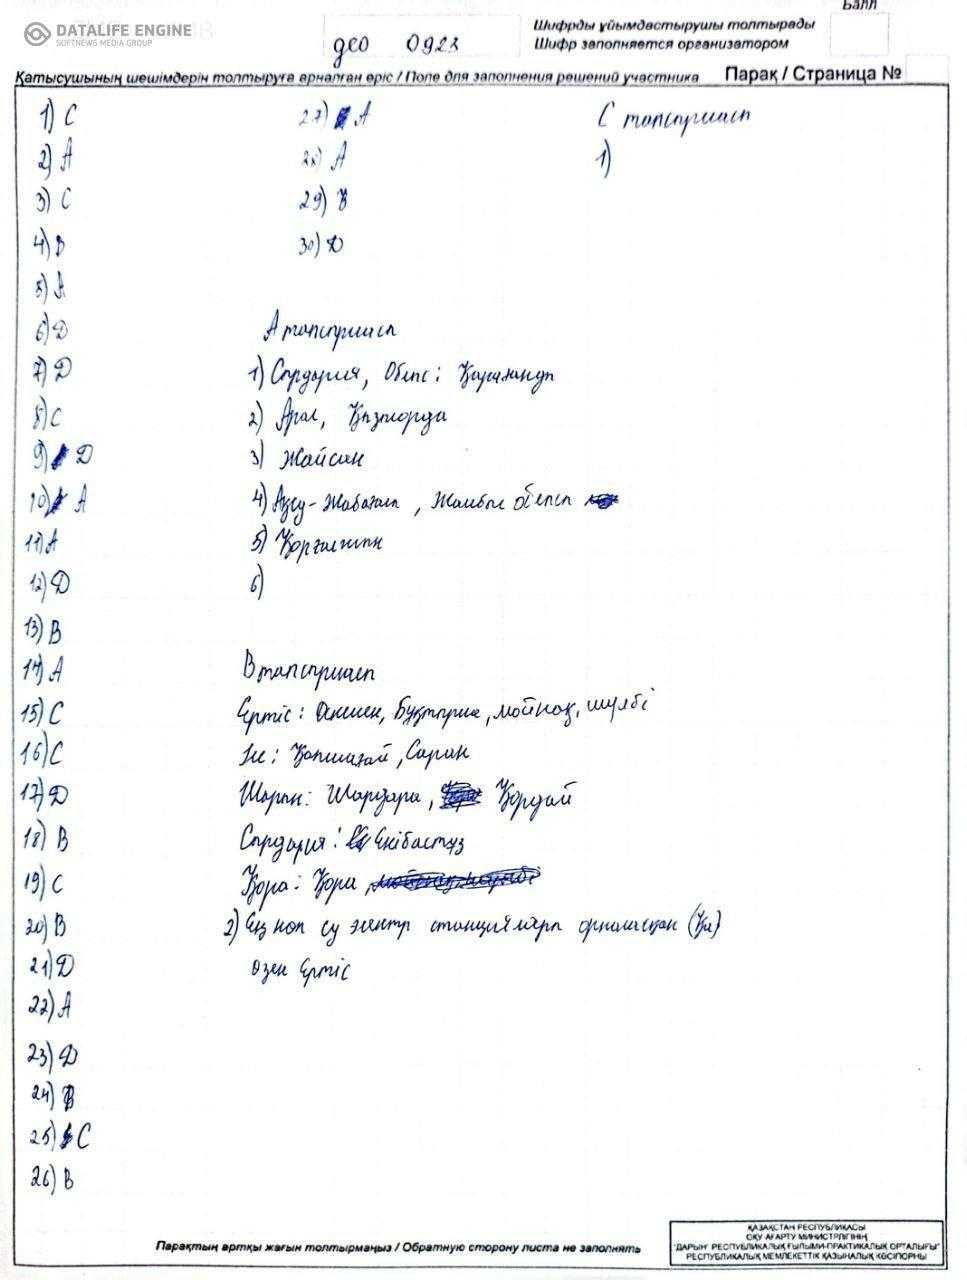 DATALIFE ENGINE
SOFTNEWS MEDIA GROUP
Балл
гео 0923
Шифрды ұйымдастырушы толтырады
Шифр заполняется организатором
Қатысушының шешімдерін толтыруға арналған өріс / Поле для заполнения решений участника
Парақ / Страница №
1) С
2) А
3) С
4) В
5) А
6) D
7) D
8) С
9) D
10) А
11) А
12) D
13) В
14) А
15) С
16) С
17) D
18) В
19) С
20) В
21) D
22) А
23) D
24) В
25) С
26) В
27) А
28) А
29) В
30) D
А тапсырмасы
1) Сырдария, Облыс: Қарағанды
2) Арал, Қызылорда
3) Жайсан
4) Ақсу-Жабағылы, Жамбыл облысы
5) Қорғалжын
6)
В тапсырмасы
Ертіс: Өскемен, Бұқтырма, мойнақ, шүлбі
Іле: Қапшағай, Саран
Шарын: Шардара, Қордай
Сырдария: Екібастұз
Қора: Қора,
2) Ең көп су электр станциялары орналасқан
өзен Ертіс
С тапсырмасы
1)
Парақтың артқы жағын толтырмаңыз / Обратную сторону листа не заполнять
ҚАЗАҚСТАН РЕСПУБЛИКАСЫ
ОҚУ АҒАРТУ МИНИСТРЛІГІНІҢ
"ДАРЫН" РЕСПУБЛИКАЛЫҚ ҒЫЛЫМИ-ПРАКТИКАЛЫҚ ОРТАЛЫҒЫ"
РЕСПУБЛИКАЛЫҚ МЕМЛЕКЕТТІК ҚАЗЫНАЛЫҚ КӘСІПОРНЫ